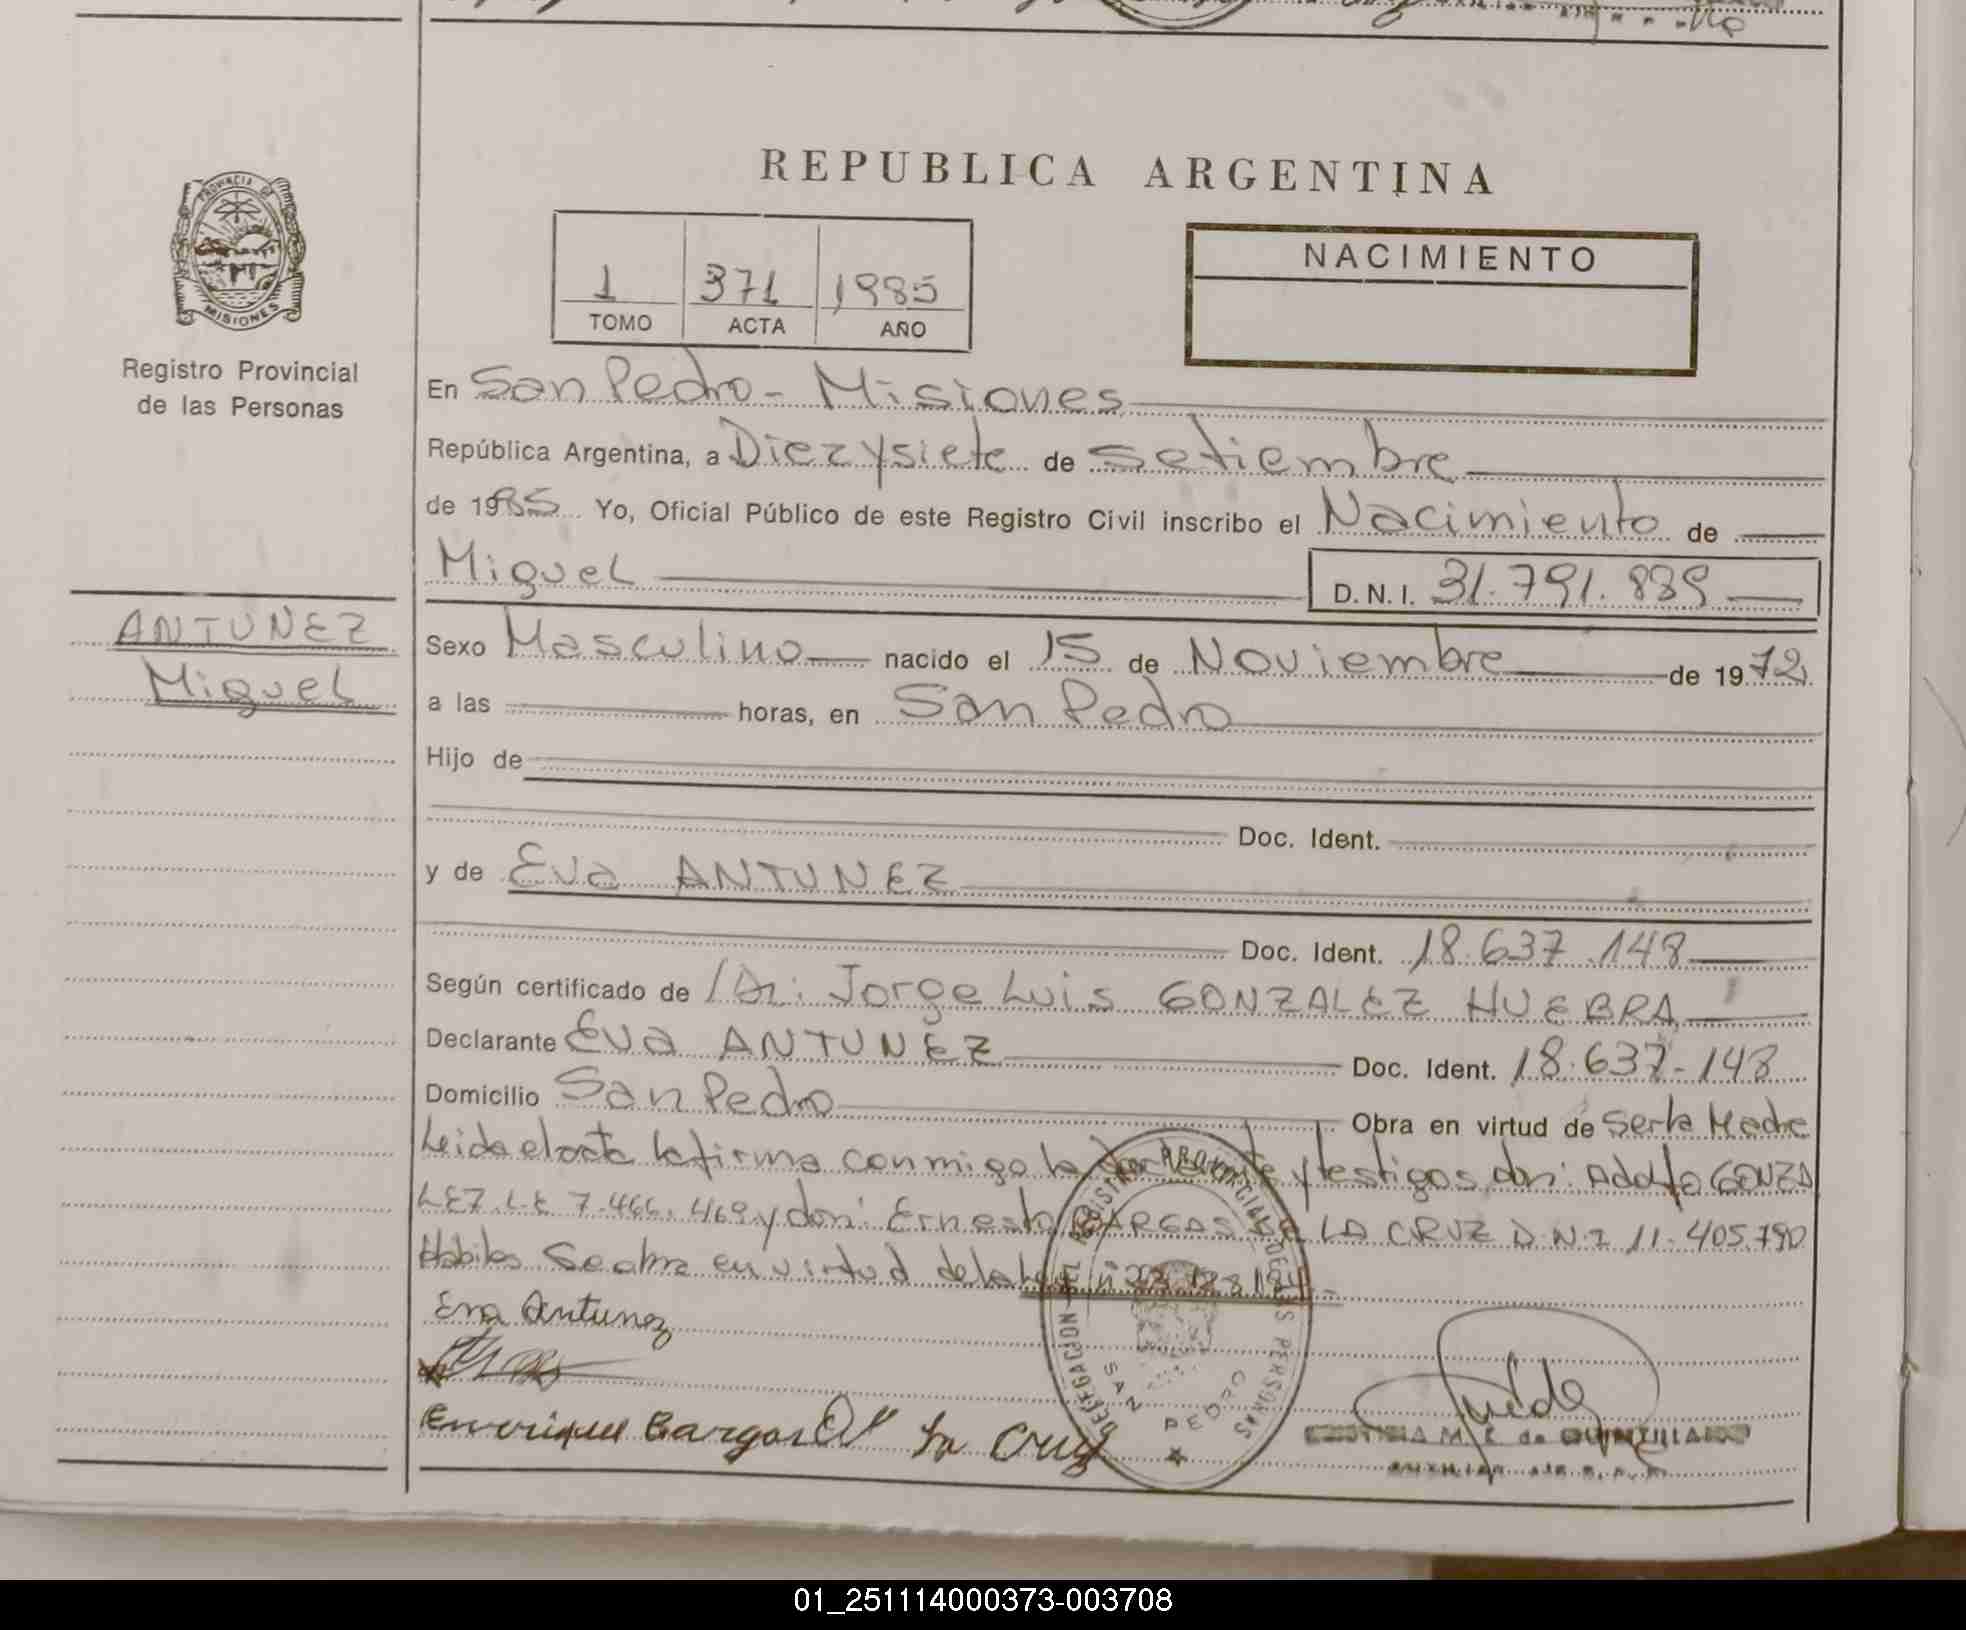 REPUBLICA ARGENTINA
PROVINCIA DE
MISIONES
Registro Provincial
de las Personas
1 371 1985
TOMO ACTA AÑO
NACIMIENTO
En San Pedro - Misiones
República Argentina, a Diezysiete de setiembre
de 1985 Yo, Oficial Público de este Registro Civil inscribo el Nacimiento de
Miguel
D.N.I. 31.791.839
ANTUNEZ
Miguel
Sexo Masculino nacido el 15 de Noviembre de 1972
a las horas, en San Pedro
Hijo de
Doc. Ident.
y de Eva ANTUNEZ
Doc. Ident. 18.637.148
Según certificado de Dr. Jorge Luis GONZALEZ HUEBRA
Declarante Eva ANTUNEZ Doc. Ident. 18.637-148
Domicilio San Pedro Obra en virtud de Ser la Madre
Leida el acta la firma conmigo la declarante y testigos don: Adolfo GONZA
LEZ L.E 7.466.469 y don: Ernesto BARGAS DE LA CRUZ D.N.I 11.405.790
Habiles Se abre en virtud de la Ley n 23.128
Eva Antunez
Enrrique Bargas la Cruz
REGISTRO PROVINCIAL DE LAS PERSONAS
DELEGACION
SAN PEDRO
M. E. de QUINTILLAN
01_251114000373-003708